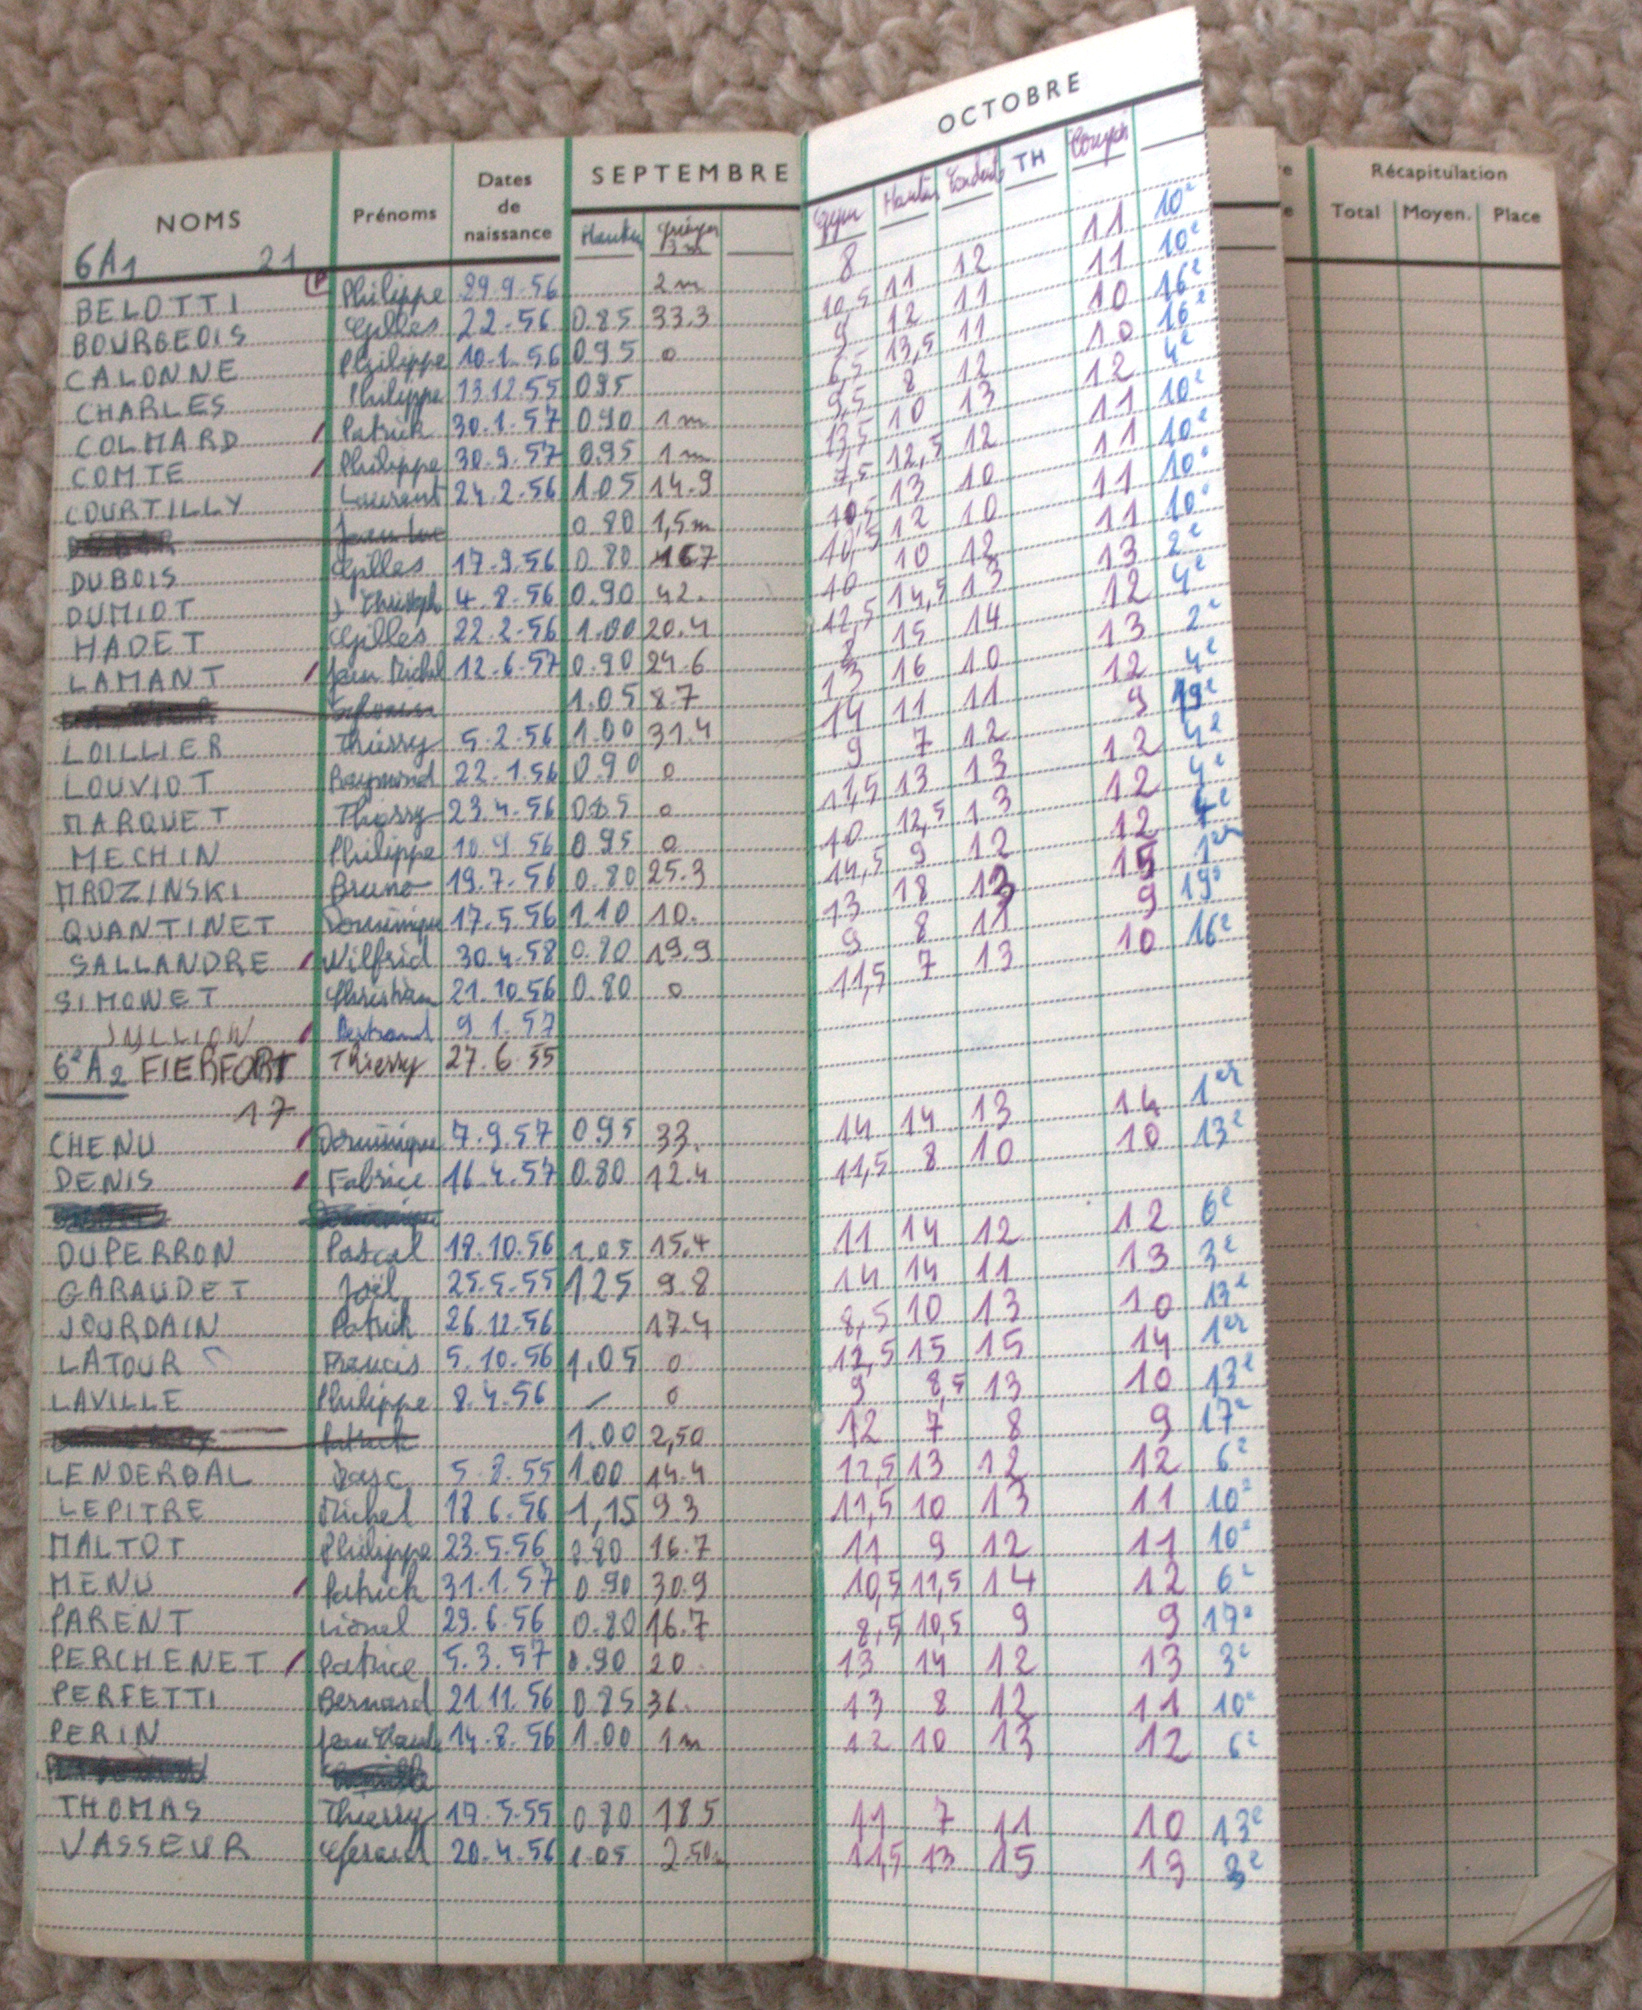 NOMS Prénoms Dates de naissance SEPTEMBRE OCTOBRE Récapitulation
Total Moyen. Place
Hauteur grimper 3m Gym Hauteur TH
6A1 21
BELOTTI P Philippe 29.9.56 2m 8 11 10e
BOURGEOIS Gilles 22.56 0.85 33.3 10,5 11 12 11 10e
CALONNE Philippe 10.1.56 0.95 0 9 12 11 10 16e
CHARLES Philippe 13.12.55 0.95 6,5 13,5 11 10 16e
COLMARD Patrick 30.1.57 0.90 1m 9,5 8 12 12 4e
COMTE Philippe 30.9.57 0.95 1m 13,5 10 13 11 10e
COURTILLY Laurent 24.2.56 1.05 14.9 7,5 12,5 12 11 10e
Jean Luc 0.80 1,5m 10,5 13 10 11 10e
DUBOIS Gilles 17.9.56 0.80 167 10,5 12 10 11 10e
DUMIOT J Christoph 4.8.56 0.90 42. 10 10 12 13 2e
HADET Gilles 22.2.56 1.00 20.4 12,5 14,5 13 12 4e
LAMANT Jean Michel 12.6.57 0.90 24.6 8 15 14 13 2e
Sylvain 1.05 8.7 13 16 10 12 4e
LOILLIER Thierry 5.2.56 1.00 31.4 14 11 11 9 19e
LOUVIOT Raymond 22.1.56 0.90 0 9 7 12 12 4e
MARQUET Thierry 23.4.56 0.85 0 11,5 13 13 12 4e
MECHIN Philippe 10.9.56 0.95 0 10 12,5 13 12 4e
MROZINSKI Bruno 19.7.56 0.80 25.3 14,5 9 12 15 1er
QUANTINET Dominique 17.5.56 1.10 10. 13 18 13 9 19e
SALLANDRE Wilfrid 30.4.58 0.80 19.9 9 8 11 10 16e
SIMONET Christian 21.10.56 0.80 0 11,5 7 13
JULLION Bertrand 9.1.57
6eA2 FIERFORT Thierry 27.6.55
17
CHENU Dominique 7.9.57 0.95 33. 14 14 13 14 1er
DENIS Fabrice 16.4.57 0.80 12.4 11,5 8 10 10 13e
Dominique
DUPERRON Pascal 18.10.56 1.05 15.4 11 14 12 12 6e
GARAUDET Joël 25.5.55 125 9.8 14 14 11 13 3e
JOURDAIN Patrick 26.12.56 17.4 8,5 10 13 10 13e
LATOUR Francis 5.10.56 1.05 0 12,5 15 15 14 1er
LAVILLE Philippe 8.4.56 / 0 9 8,5 13 10 13e
Patrick 1.00 2,50 12 7 8 9 17e
LENDERDAL 5.8.55 1.00 14.4 12,5 13 12 12 6e
LEPITRE Michel 18.6.56 1,15 9.3 11,5 10 13 11 10e
MALTOT Philippe 23.5.56 0.80 16.7 11 9 12 11 10e
MENU Patrick 31.1.57 0.90 30.9 10,5 11,5 14 12 6e
PARENT Lionel 29.6.56 0.80 16.7 8,5 10,5 9 9 17e
PERCHENET Patrice 5.3.57 0.90 20. 13 14 12 13 3e
PERFETTI Bernard 21.11.56 0.85 36. 13 8 12 11 10e
PERIN Jean Claude 14.8.56 1.00 1m 12 10 13 12 6e
THOMAS Thierry 17.5.55 0.80 185 11 7 11 10 13e
VASSEUR Gérard 20.4.56 1.05 2.50m 11,5 13 15 13 3e